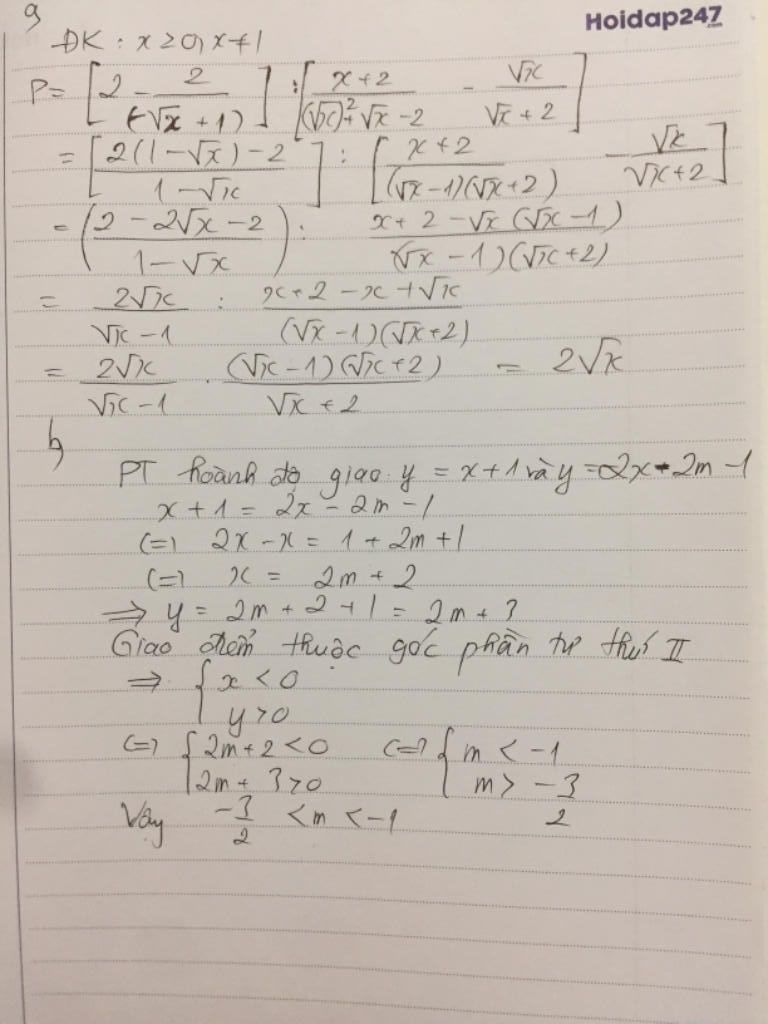 a
Hoidap247
.com
ĐK : x ≥ 0, x ≠ 1
P = [2 - 2/(-√x + 1)] : [(x+2)/((√x)² + √x - 2) - √x/(√x + 2)]
= [(2(1-√x) - 2)/(1-√x)] : [(x+2)/((√x-1)(√x+2)) - √x/(√x+2)]
= ((2 - 2√x - 2)/(1-√x)) : (x + 2 - √x (√x - 1))/((√x - 1)(√x+2))
= 2√x/(√x - 1) : (x + 2 - x + √x)/((√x - 1)(√x+2))
= 2√x/(√x - 1) . ((√x - 1)(√x+2))/(√x + 2) = 2√x
b
PT hoành độ giao y = x+1 và y = 2x - 2m - 1
x + 1 = 2x - 2m - 1
(=) 2x - x = 1 + 2m + 1
(=) x = 2m + 2
⇒ y = 2m + 2 + 1 = 2m + 3
Giao điểm thuộc góc phần tư thứ II
⇒ { x < 0
y > 0
(=) { 2m + 2 < 0 (=) { m < -1
2m + 3 > 0 m > -3/2
Vậy -3/2 < m < -1